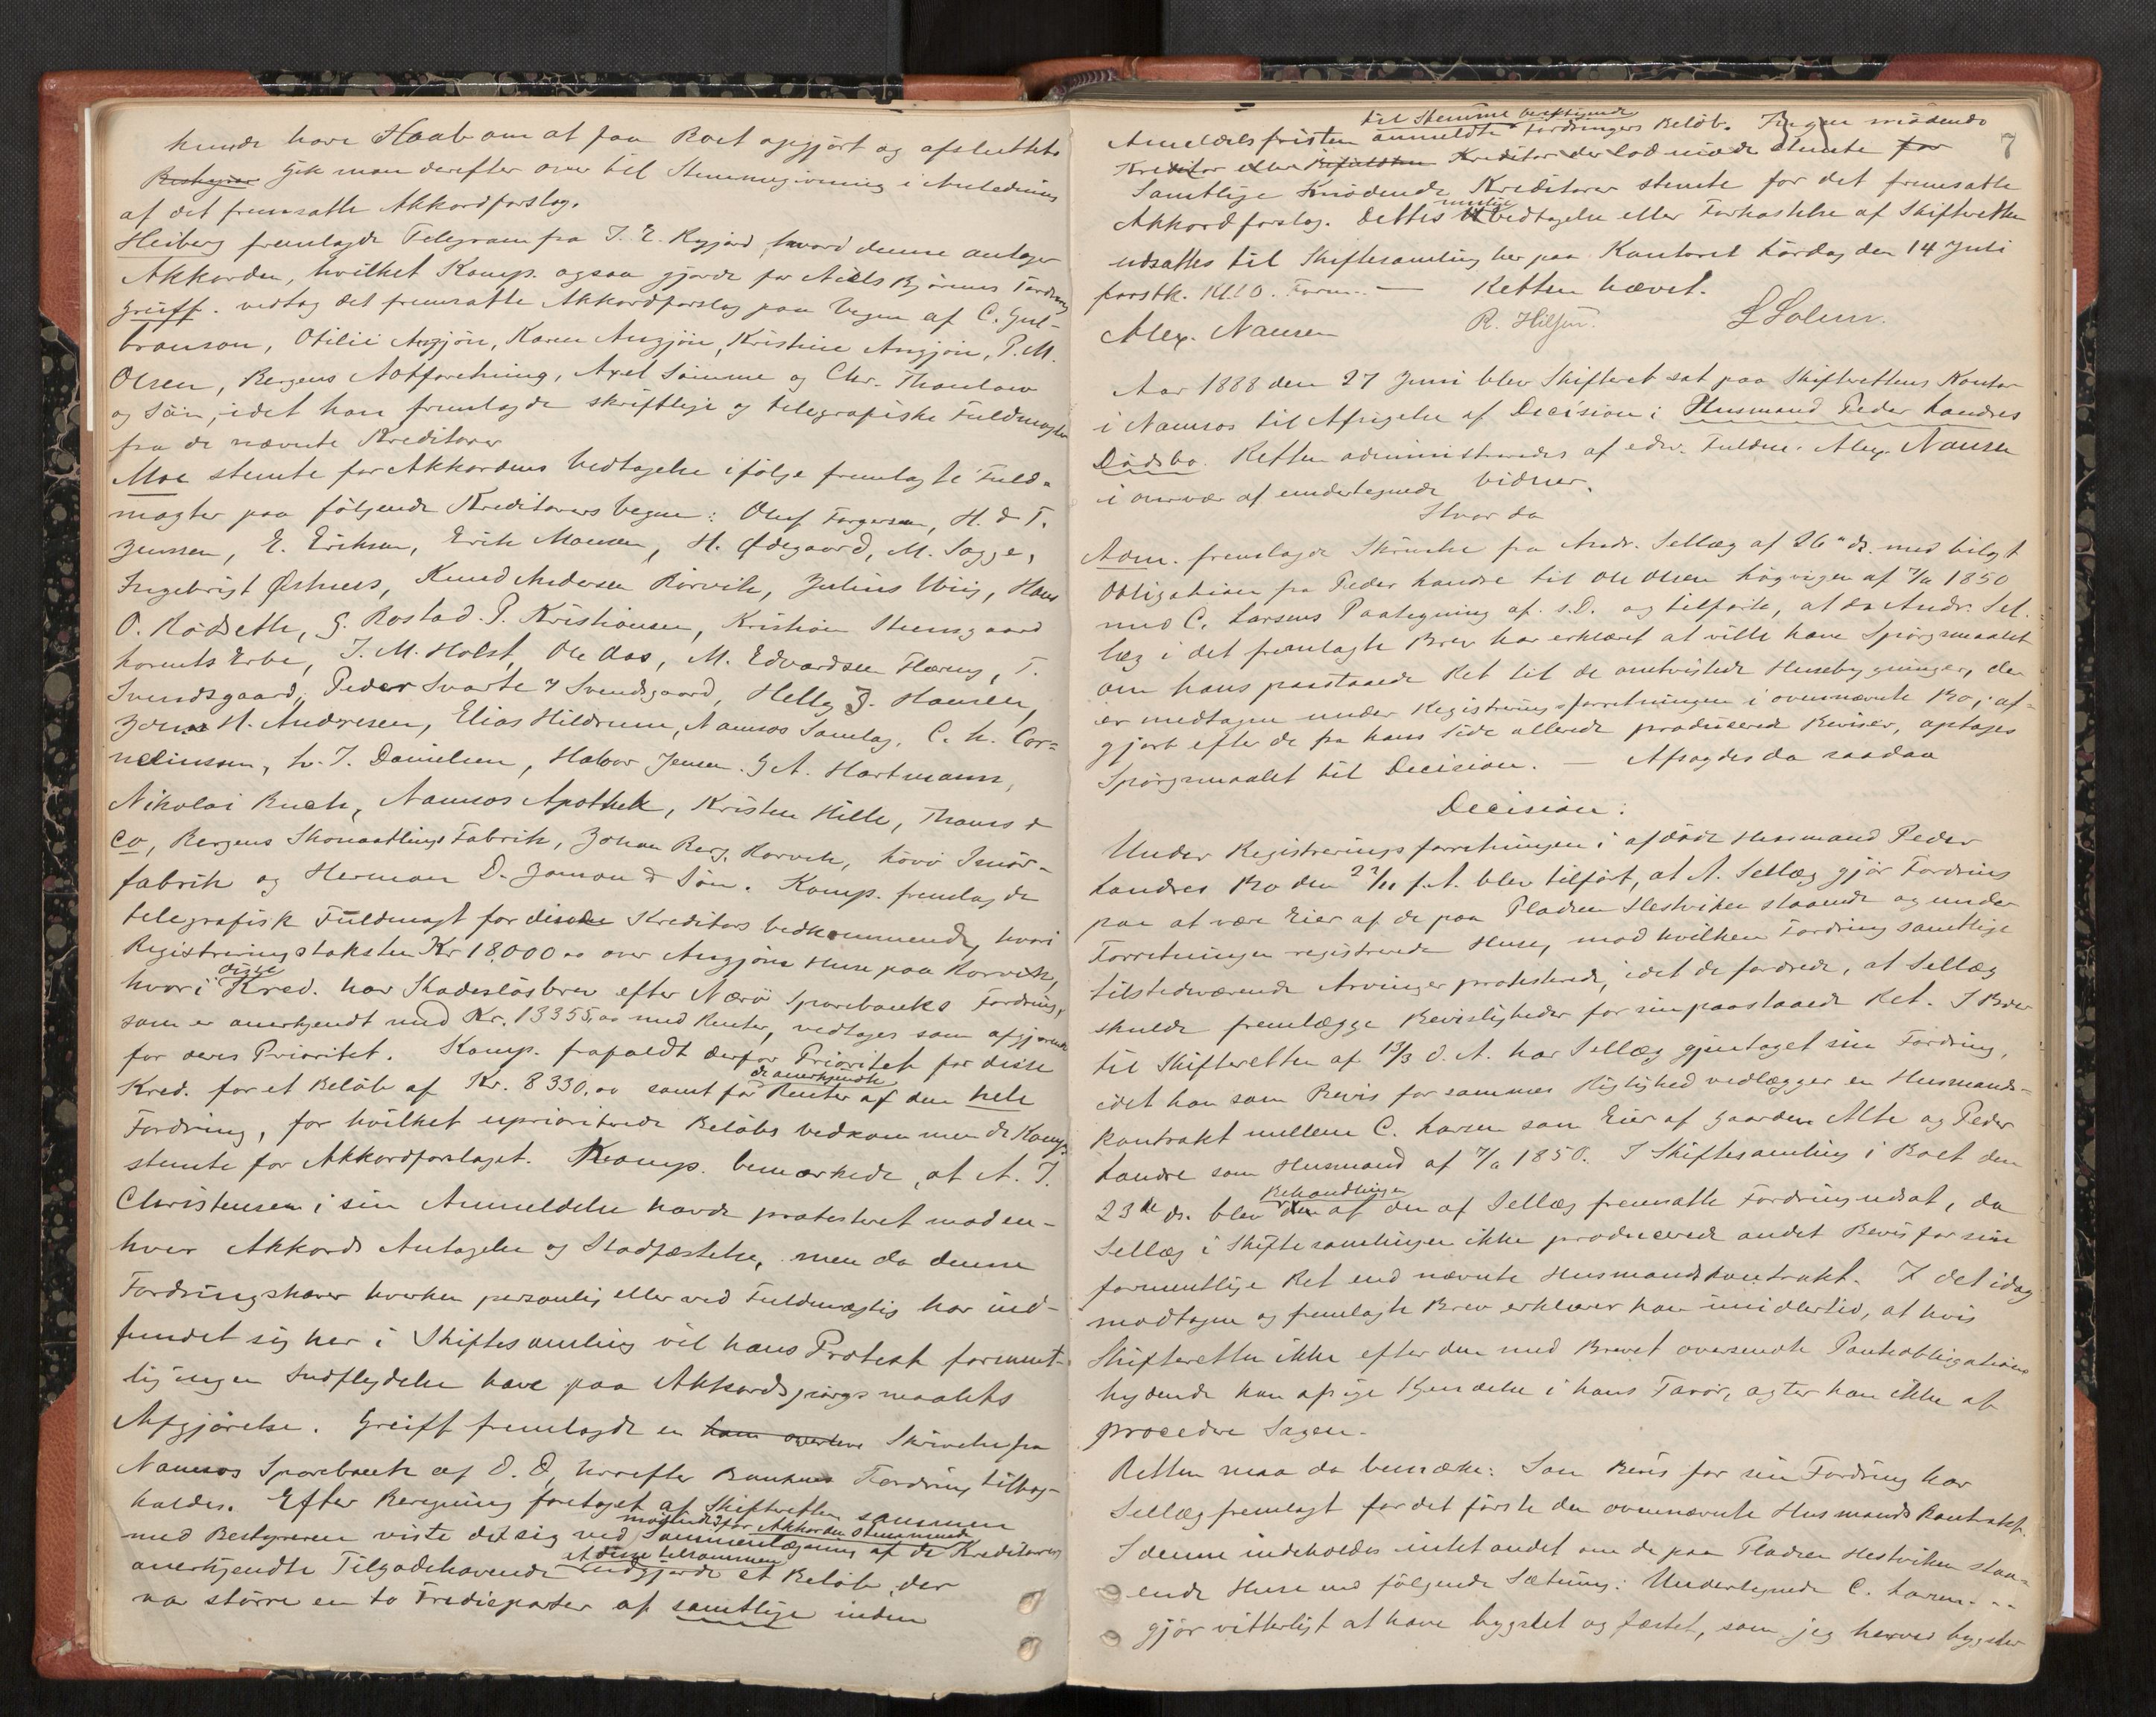 kunde have Haab om at faa Boet opgjört og afsluttet
Bestyrer Gik man derefter over til Stemmegivning i Anledning
af det fremsatte Akkordforslag.
Heiberg fremlagde Telegram fra J. E. hvori denne antager
Akkorden, hvilket Komp. ogsaa gjorde for Niels Björnes Fordring
Greiff. vedtog det fremsatte Akkordforslag paa Vegne af C. Gul-
branson, Otilie Angjön, Karen Angjön, Kristine Angjön, P. M.
Olsen, Bergens Notforretning, Axel Sömme og Chr. Thaulow
og Sön, idet han fremlagde skriftlige og telegrafiske Fuldmagter
fra de nævnte Kreditorer
Moe stemte for Akkordens Vedtagelse ifölge fremlagte Fuld-
magter paa fölgende Kreditorers Vegne: Oluf Torgersen, H. & T.
Jenssen, E. Eriksen, Erik Monsen, H. Ödegaard, M. Sagge,
Ingebrigt Östnes, Knud Andersen Rörvik, Julius Wiig, Hans
O. Rödseth, G. Rostad. P. Kristiansen, Kristian Steensgaard
Lorents Erbe, J. M. Holst, Ole Aas, M. Edvardsen Flæreng, T.
Svendsgaard, Peder Svarte & Svendsgaard, Helly J. Hansen,
Jörn H. Andresen, Elias Hildrum, Namsos Samlag, C. L. Cor-
neliussen, L. J. Danielsen, Halvor Jensen. G A. Hartmann,
Nikolai Buch, Namsos Apothek, Kristen Hille, Thams &
Co, Bergens Fabrik, Johan Berg, Rörvik, Lövö Smör-
fabrik og Herman D. Jomon & Sön. Komp. fremlagde
telegrafisk Fuldmagt for disse Kreditors Vedkommende, hvori
Registreringstaksten Kr 18,000 00 over Angjöns Huse paa Rörvik,
hvori disse Kred. har Skadeslösbrev efter Nærö Sparebanks Fordring,
som er anerkjendt med Kr. 13355,00 med Renter, vedtages som afgjörende
for deres Prioritet. Komp. frafaldt derfor Prioritet for disse
Kred. for et Belöb af Kr. 8330,00 samt for de anerkjendte Renter af den hele
Fordring, for hvilket uprioriterede Belöbs Vedkommende Komp.
stemte for Akkordforslaget. Komp. bemærkede, at A. J.
Christensen i sin Anmeldelse havde protesteret mod en-
hver Akkords Antagelse og Stadfæstelse, men da denne
Fordringshaver hverken personlig eller ved Fuldmægtig har ind-
fundet sig her i Skiftesamling vil hans Protest forment-
lig ingen Indflydelse have paa Akkordspörgsmaalets
Afgjörelse. Greiff fremlagde en Skrivelse fra
Namsos Sparebank af D. D. hvorefter Bankens Fordring tilbage-
holdes. Efter Beregning foretaget af Skifteretten sammen
med Bestyreren viste det sig ved Sammenlægning af de mödende for Akkorden stemmende Kreditorers
anerkjendte Tilgodehavende at disse tilsammen udgjorde et Belöb, der
var större en to Trediepart af samtlige inden
7
Anmeldelsfristen anmeldte til Stemme berettigende Fordringers Belöb. Ingen mödende
Kreditor eller Kreditor der lod möde stemte for
Samtlige mödende Kreditorer stemte for det fremsatte
Akkordforslag. Dettes mulige Vedtagelse eller Forkastelse af Skifteretten
udsattes til Skiftesamling her paa Kontoret Lördag den 14 Juli
förstk. Kl. 10. Form. — Retten hævet.
Alex. Nansen R. L Solem.
Aar 1888 den 27 Juni blev Skifteret sat paa Skifterettens Kontor
i Namsos til Afsigelse af Decision i Husmand Peder Landres
Dödsbo. Retten administreredes af edsv. Fuldm. Alex. Nansen
i Overvær af undertegnede Vidner.
Hvor da
Adm. fremlagde Skrivelse fra Andr. Sellæg af 26de ds. med bilagt
Obligation fra Peder Landre til Ole Olsen af 7/11 1850
med C. Larsens Paategning af. s.D. og tilförte, at da Andr. Sel-
læg i det fremlagte Brev har erklæret at ville have Spörgsmaalet
om hans paastaaede Ret til de omtvistede Husebygninger, der
er medtagen under Registreringsforretningen i ovennævnte Bo, af-
gjort efter de fra hans Side allerede producerede Beviser, optages
Spörgsmaalet til Decision. — Afsagdes da saadan
Decision:
Under Registreringsforretningen i afdöde Husmand Peder
Landres Bo den 22/11 f. A. blev tilfört, at A. Sellæg gjör Fordring
paa at være Eier af de paa Pladsen Hestviken staaende og under
Forretningen registrerede Huse, mod hvilken Fordring samtlige
tilstedeværende Arvinger protesterede, idet de fordrede, at Sellæg
skulde fremlægge Bevisligheder for sin paastaaede Ret. I Brev
til Skifteretten af 13/3 d. A. har Sellæg gjentaget sin Fordring,
idet han som Bevis for sammes Rigtighed vedlægger en Husmands-
kontrakt mellem C. Larsen som Eier af Gaarden Alte og Peder
Landre som Husmand af 7/11 1850. I Skiftesamling i Boet den
23de ds. blev Behandlingen af den af Sellæg fremsatte Fordring udsat, da
Sellæg i Skiftesamlingen ikke producerede andet Bevis for sin
formentlige Ret end nævnte Husmandskontrakt. I det idag
modtagne og fremlagte Brev erklærer han imidlertid, at hvis
Skifteretten ikke efter den med Brevet oversendte Panteobligations
Lydende kan afsige Kjendelse i hans Favör, agter han ikke at
procedere Sagen.
Retten maa da bemærke: Som Bevis for sin Fordring har
Sellæg fremlagt for det förste den ovennævnte Husmandskontrakt.
I denne indeholdes intet andet om de paa Pladsen Hestviken staa-
ende Huse end fölgende Sætning: Undertegnede C. Larsen - -
gjör vitterligt at have bygslet og fæstet, som jeg herved bygsler